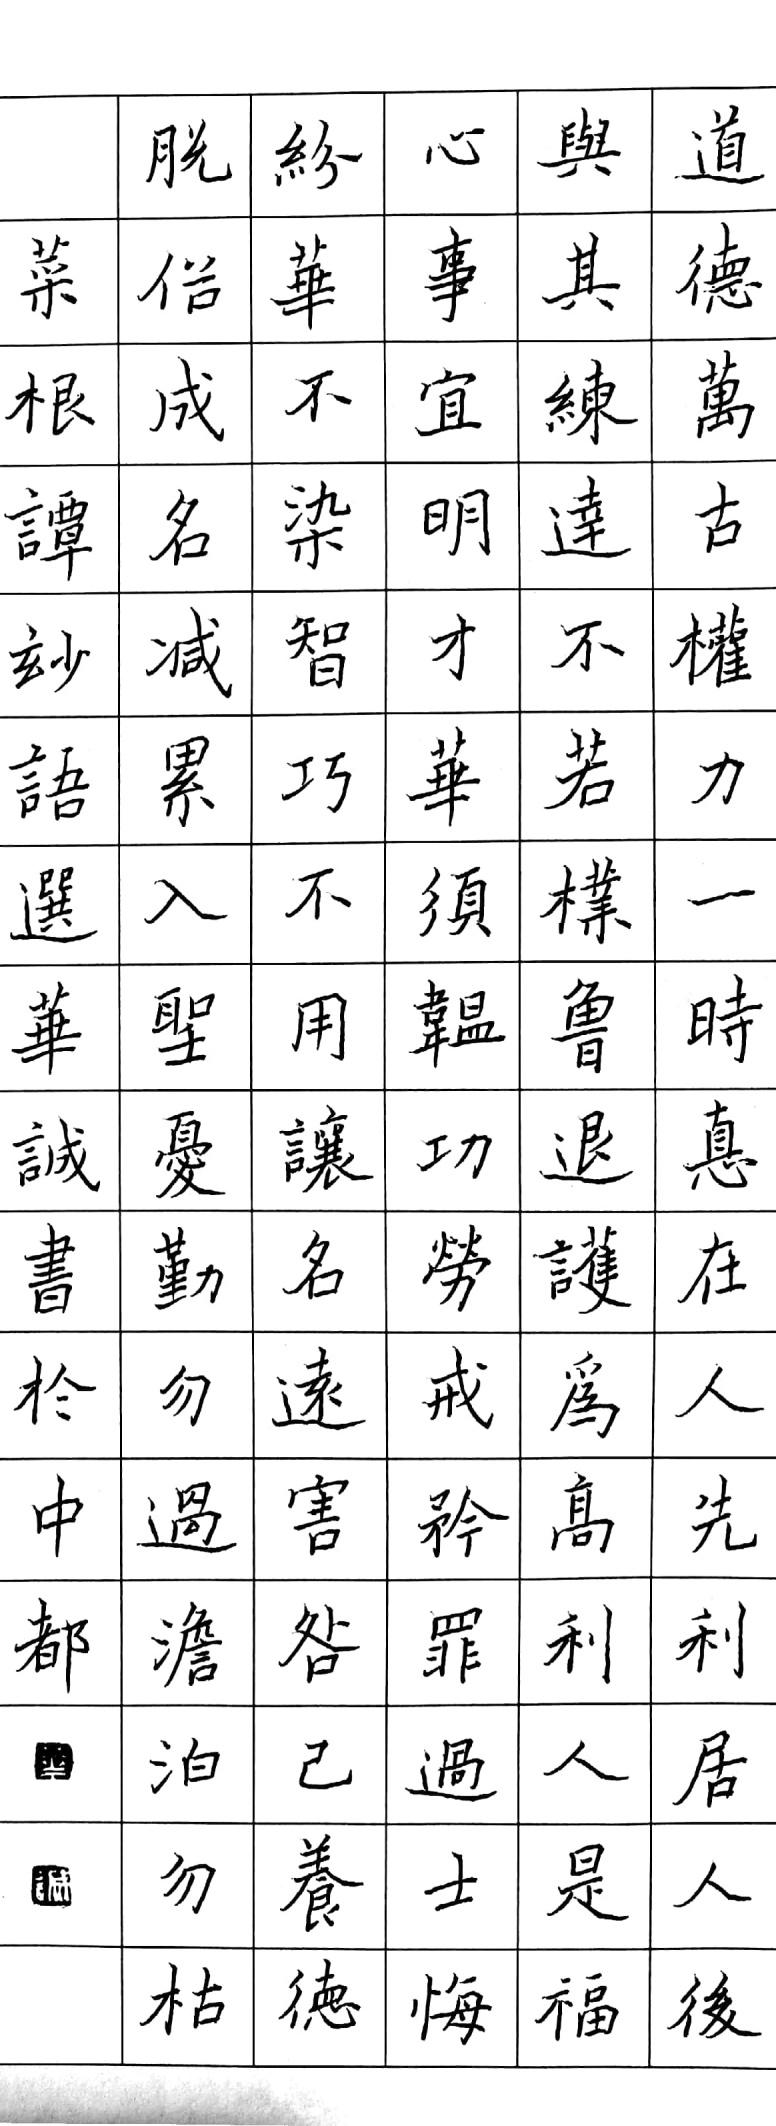 道德萬古權力一時悳在人先利居人後
與其練達不若樸魯退護爲高利人是福
心事宜明才華須韞功勞戒矜罪過士悔
紛華不染智巧不用讓名遠害咎己養德
脱俗成名减累入聖憂勤勿過澹泊勿枯
菜根譚玅語選華誠書於中都